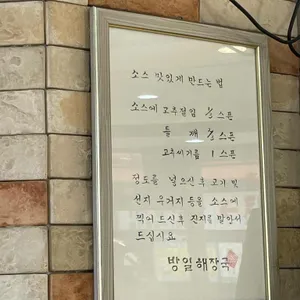 소스 맛있게 만드는 법
소스에 고추절임 ½ 스픈
들깨 ½ 스픈
고추씨기름 1 스픈
정도를 넣으신 후 고기 및
선지 우거지 등을 소스에
찍어 드신후 진지를 말아서
드십시요
방일해장국